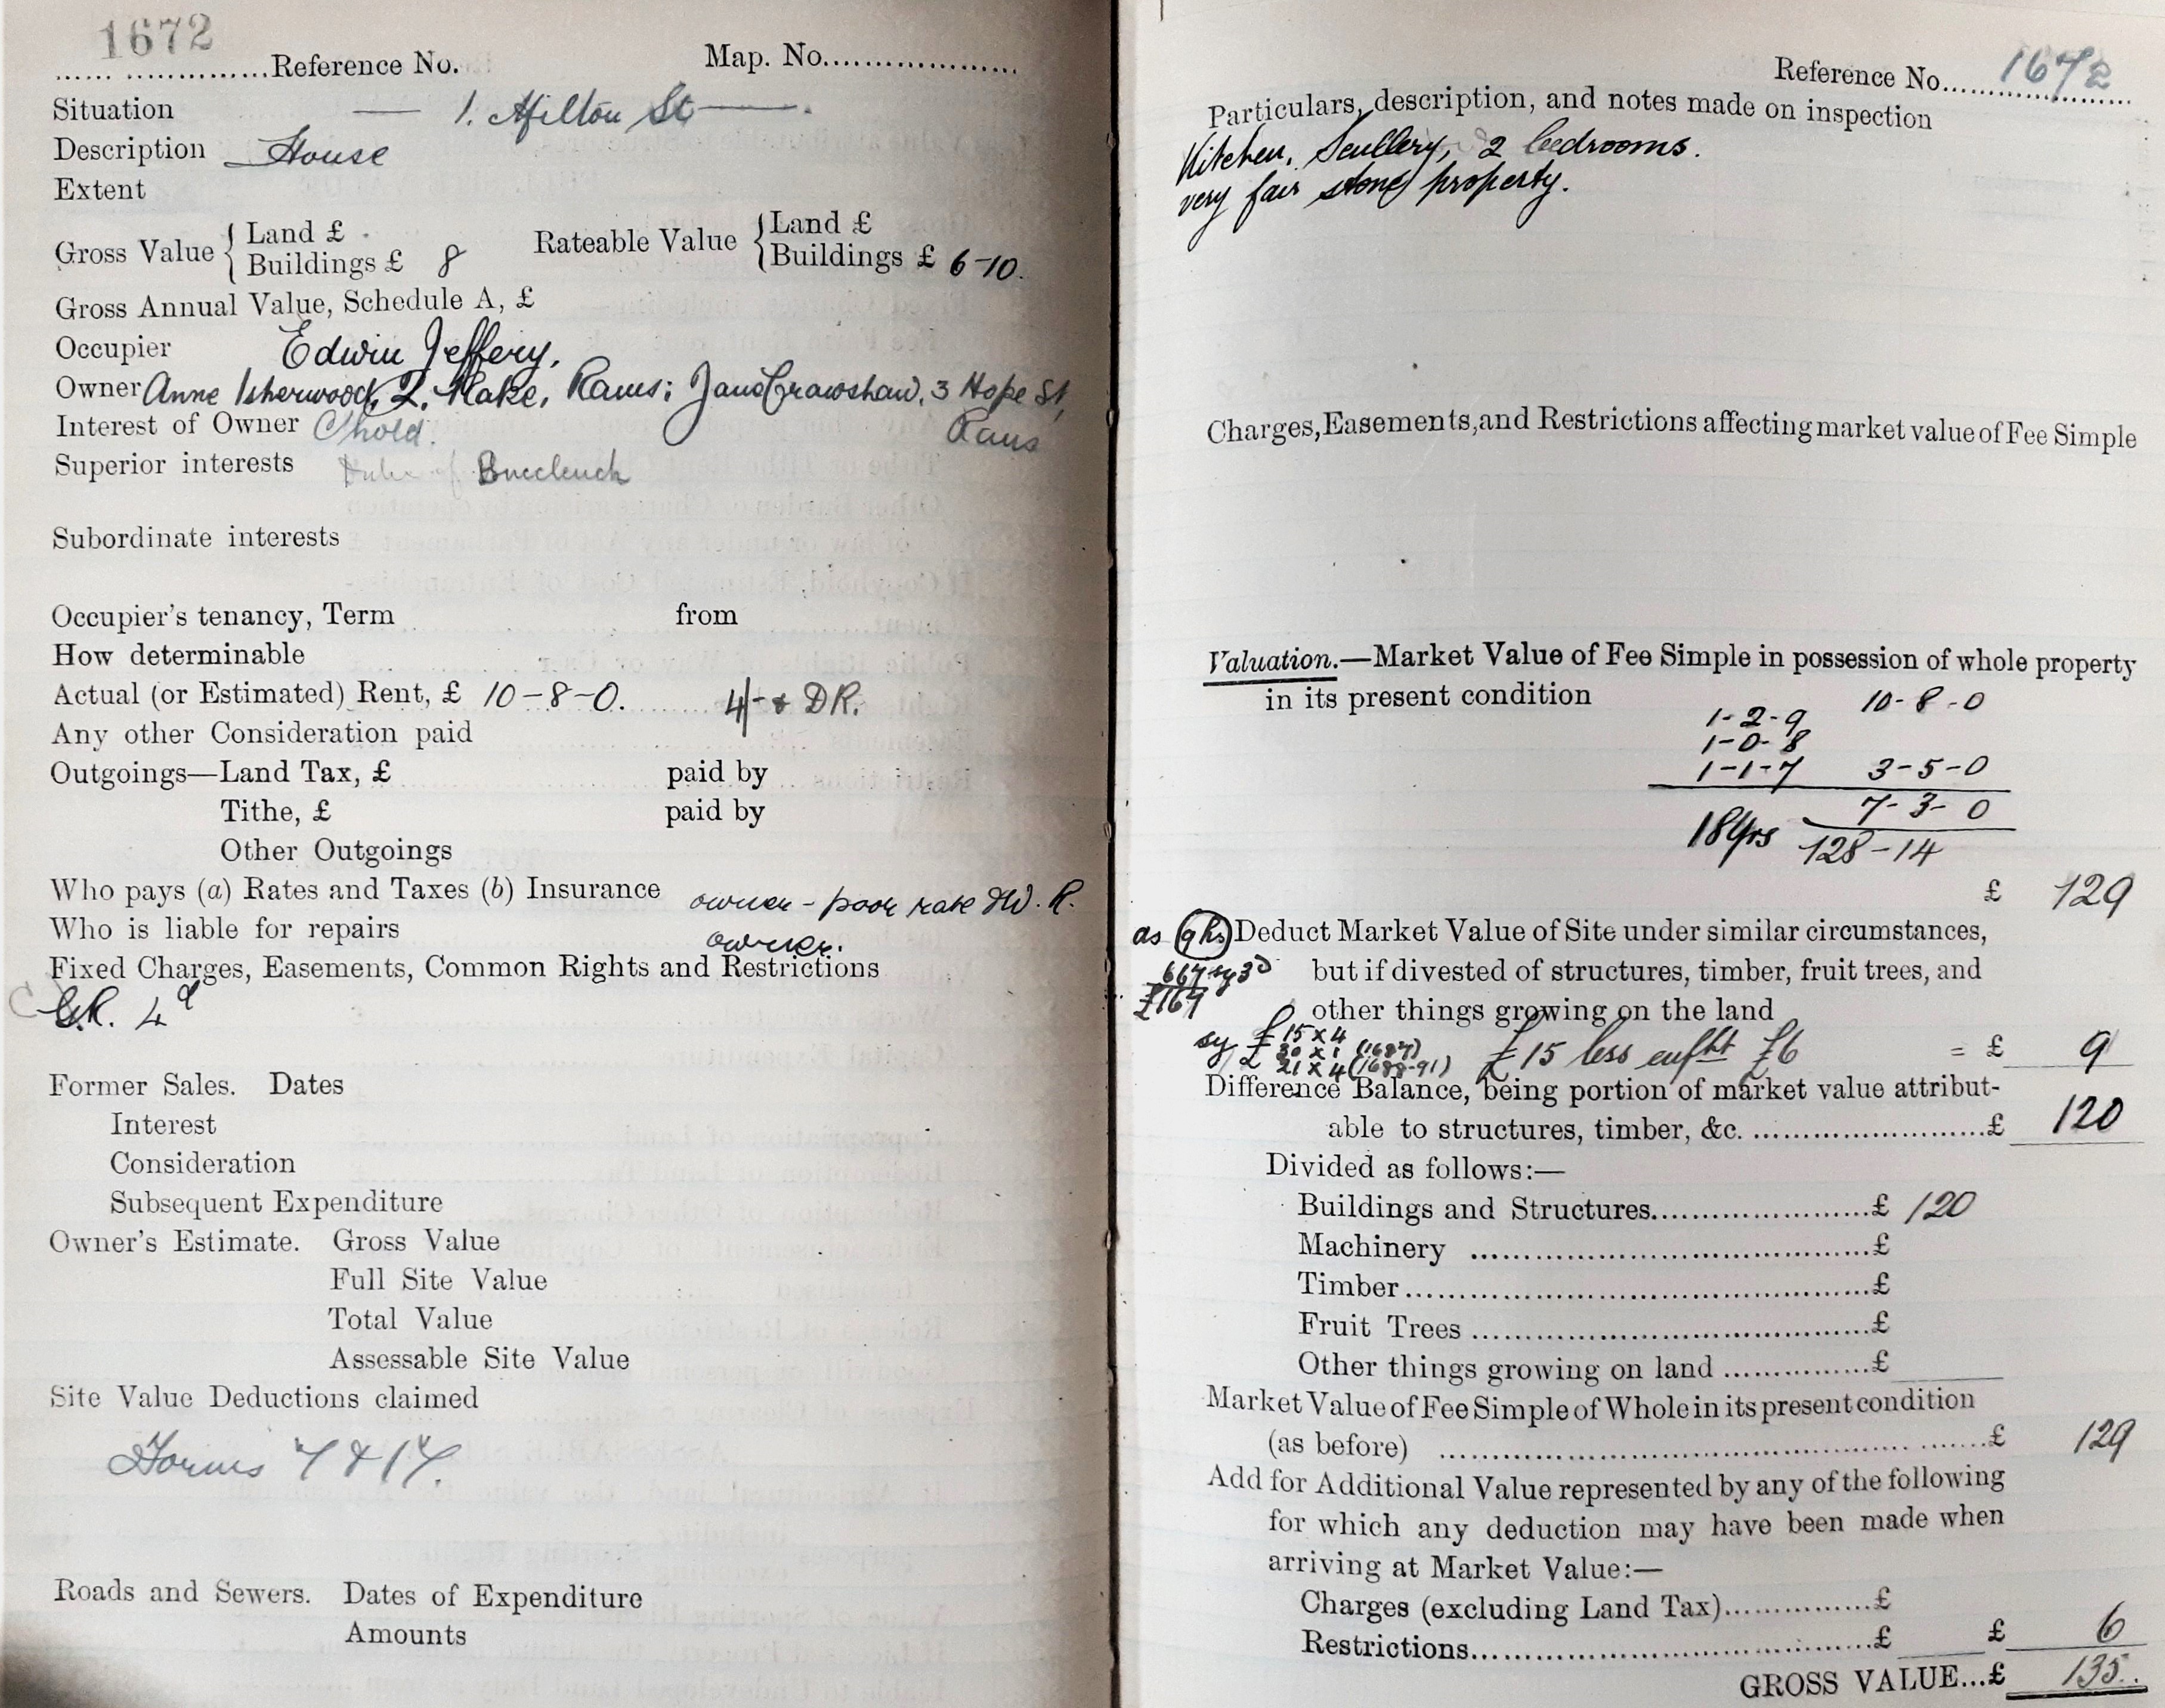 1672
...... ..............Reference No. Map. No....................
Situation — 1. Milton St —.
Description House
Extent
Gross Value { Land £ Rateable Value { Land £
Buildings £ 8 Buildings £ 6-10.
Gross Annual Value, Schedule A, £
Occupier Edwin Jeffery.
Owner Anne Isherwood, 2. Rake, Rams; Jane Crawshaw, 3 Hope St,
Interest of Owner C/hold. Rams
Superior interests Duke of Buccleuch
Subordinate interests
Occupier's tenancy, Term from
How determinable
Actual (or Estimated) Rent, £ 10-8-0. 4/- & DR.
Any other Consideration paid
Outgoings—Land Tax, £ paid by
Tithe, £ paid by
Other Outgoings
Who pays (a) Rates and Taxes (b) Insurance owner - poor rate & W. R.
Who is liable for repairs owner.
Fixed Charges, Easements, Common Rights and Restrictions
G.R. 4d
Former Sales. Dates
Interest
Consideration
Subsequent Expenditure
Owner's Estimate. Gross Value
Full Site Value
Total Value
Assessable Site Value
Site Value Deductions claimed
Forms 7 & 14.
Roads and Sewers. Dates of Expenditure
Amounts
Reference No. 1672
Particulars, description, and notes made on inspection
Kitchen, Scullery, 2 bedrooms.
very fair stone property.
Charges, Easements, and Restrictions affecting market value of Fee Simple
Valuation.—Market Value of Fee Simple in possession of whole property
in its present condition 10-8-0
1-2-9
1-0-8
1-1-7 3-5-0
7-3-0
18 Yrs 128-14
£ 129
as 9 hs Deduct Market Value of Site under similar circumstances,
667 sy 3d but if divested of structures, timber, fruit trees, and
£167 other things growing on the land
sy £ 15 x 4
£ 30 x 1 (1687) £15 less enfht £6 = £ 9
21 x 4 (1688-91)
Difference Balance, being portion of market value attribut-
able to structures, timber, &c. ..........................£ 120
Divided as follows:—
Buildings and Structures........................£ 120
Machinery ............................................£
Timber...................................................£
Fruit Trees ............................................£
Other things growing on land ...............£
Market Value of Fee Simple of Whole in its present condition
(as before) ...................................................£ 129
Add for Additional Value represented by any of the following
for which any deduction may have been made when
arriving at Market Value:—
Charges (excluding Land Tax)................£
Restrictions............................................£ £ 6
GROSS VALUE...£ 135.